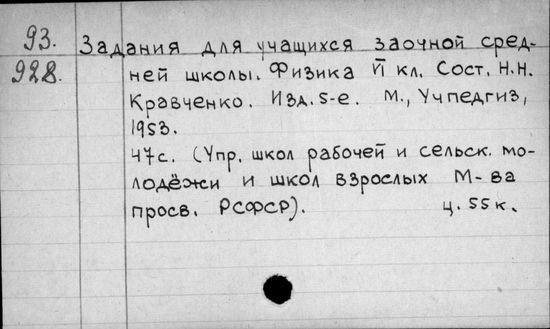 93.
928.
Задания для учащихся заочной сред-
ней школы. Физика Й кл. Сост. Н.Н.
Кравченко. Изд. 5-е. М., Учпедгиз,
1953.
47с. (Упр. школ рабочей и сельск. мо-
лодёжи и школ взрослых М-ва
просв. РСФСР). ц. 55к.